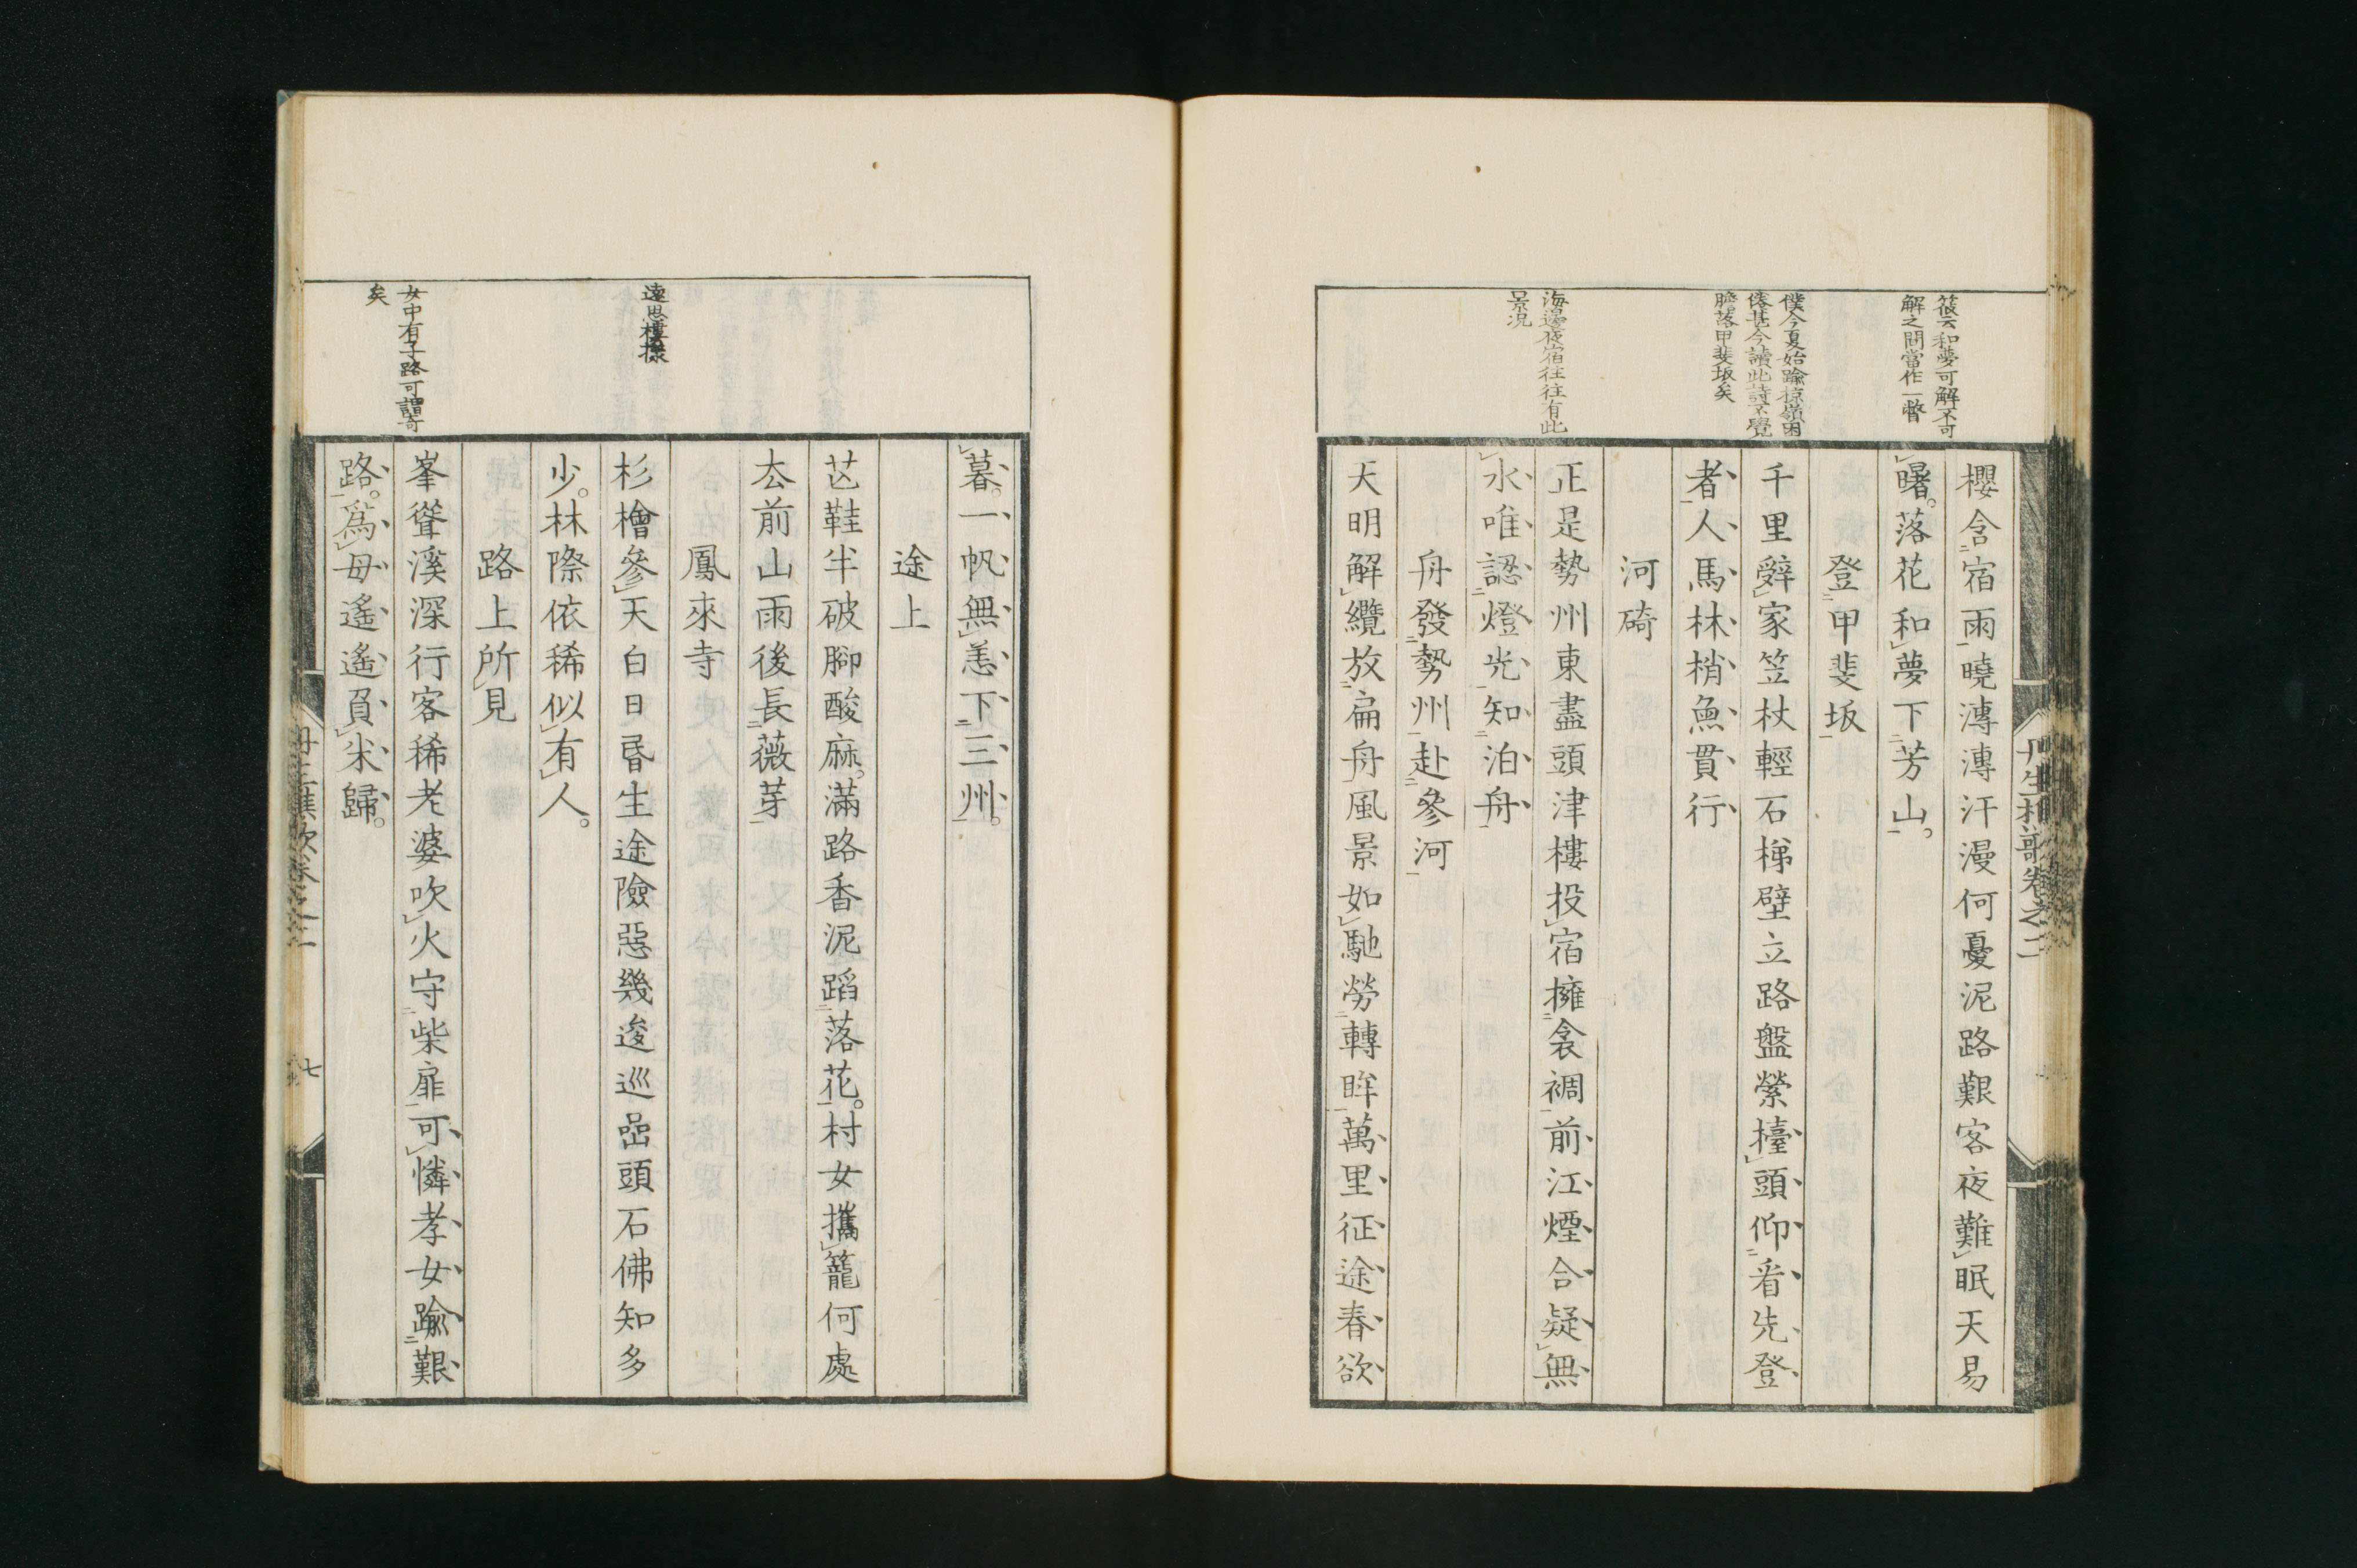 筱云和夢可解不可
解之間當作一瞥
僕今夏始踰椋嶺困
憊甚今讀此詩不覺
膽落甲斐坂矣
海邊夜宿往往有此
景况
櫻含宿雨曉漙漙汗漫何憂泥路艱客夜難眠天易
曙落花和夢下芳山
登甲斐坂
千里辭家笠杖輕石梯壁立路盤縈擡頭仰看先登
者人馬林梢魚貫行
河碕
正是勢州東盡頭津樓投宿擁衾裯前江煙合疑無
水唯認燈光知泊舟
舟發勢州赴參河
天明解纜放扁舟風景如馳勞轉眸萬里征途春欲
丹生樵歌卷之二
遠思樓樣
女中有子路可謂奇
矣
暮一帆無恙下三州
途上
芒鞋半破脚酸麻滿路香泥蹈落花村女攜籠何處
去前山雨後長薇芽
鳳來寺
杉檜參天白日昬生途險惡幾逡巡嵒頭石佛知多
少林際依稀似有人
路上所見
峯聳溪深行客稀老婆吹火守柴扉可憐孝女踰艱
路爲母遙遙負米歸
丹生樵歌卷之二
七